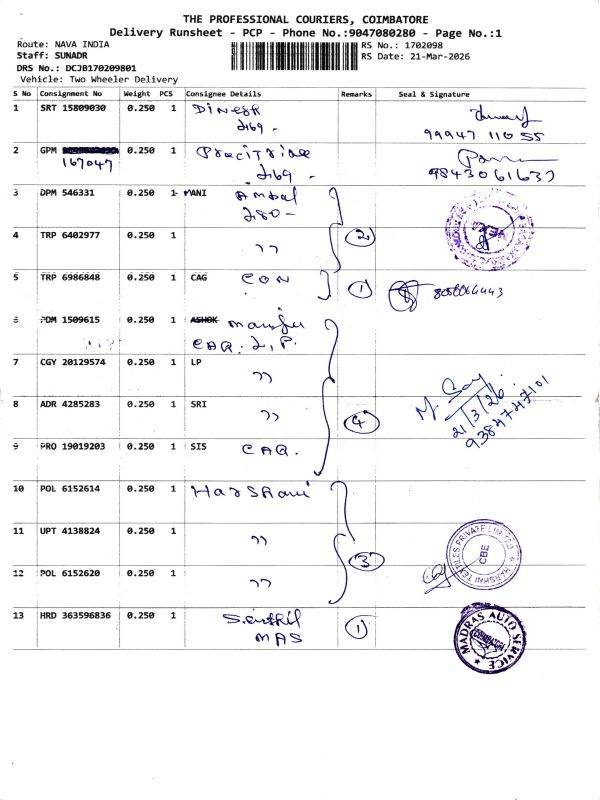 THE PROFESSIONAL COURIERS, COIMBATORE
Delivery Runsheet - PCP - Phone No.:9047080280 - Page No.:1
Route: NAVA INDIA
Staff: SUNADR
DRS No.: DCJB170209801
Vehicle: Two Wheeler Delivery
RS No.: 1702098
RS Date: 21-Mar-2026
S No Consignment No Weight PCS Consignee Details Remarks Seal & Signature
1 SRT 15809030 0.250 1 Dinesh
269 -
99947 11055
2 GPM 0.250 1
167047
269 -
9843061637
3 DPM 546331 0.250 1 MANI Ambal
280 -
4 TRP 6402977 0.250 1 "
2
5 TRP 6986848 0.250 1 CAG CON 1
6 PDM 1509615 0.250 1 ASHOK
CAG. L.P.
7 CGY 20129574 0.250 1 LP "
8 ADR 4285283 0.250 1 SRI "
4
21/3/26
9384747101
9 PRO 19019203 0.250 1 SIS CAG.
10 POL 6152614 0.250 1 Harshani
11 UPT 4138824 0.250 1 "
3
12 POL 6152620 0.250 1 "
HARSHNI TEXTILES PRIVATE LIMITED
CBE
13 HRD 363596836 0.250 1 Senthil
MAS
1
MADRAS AUTO SERVICE